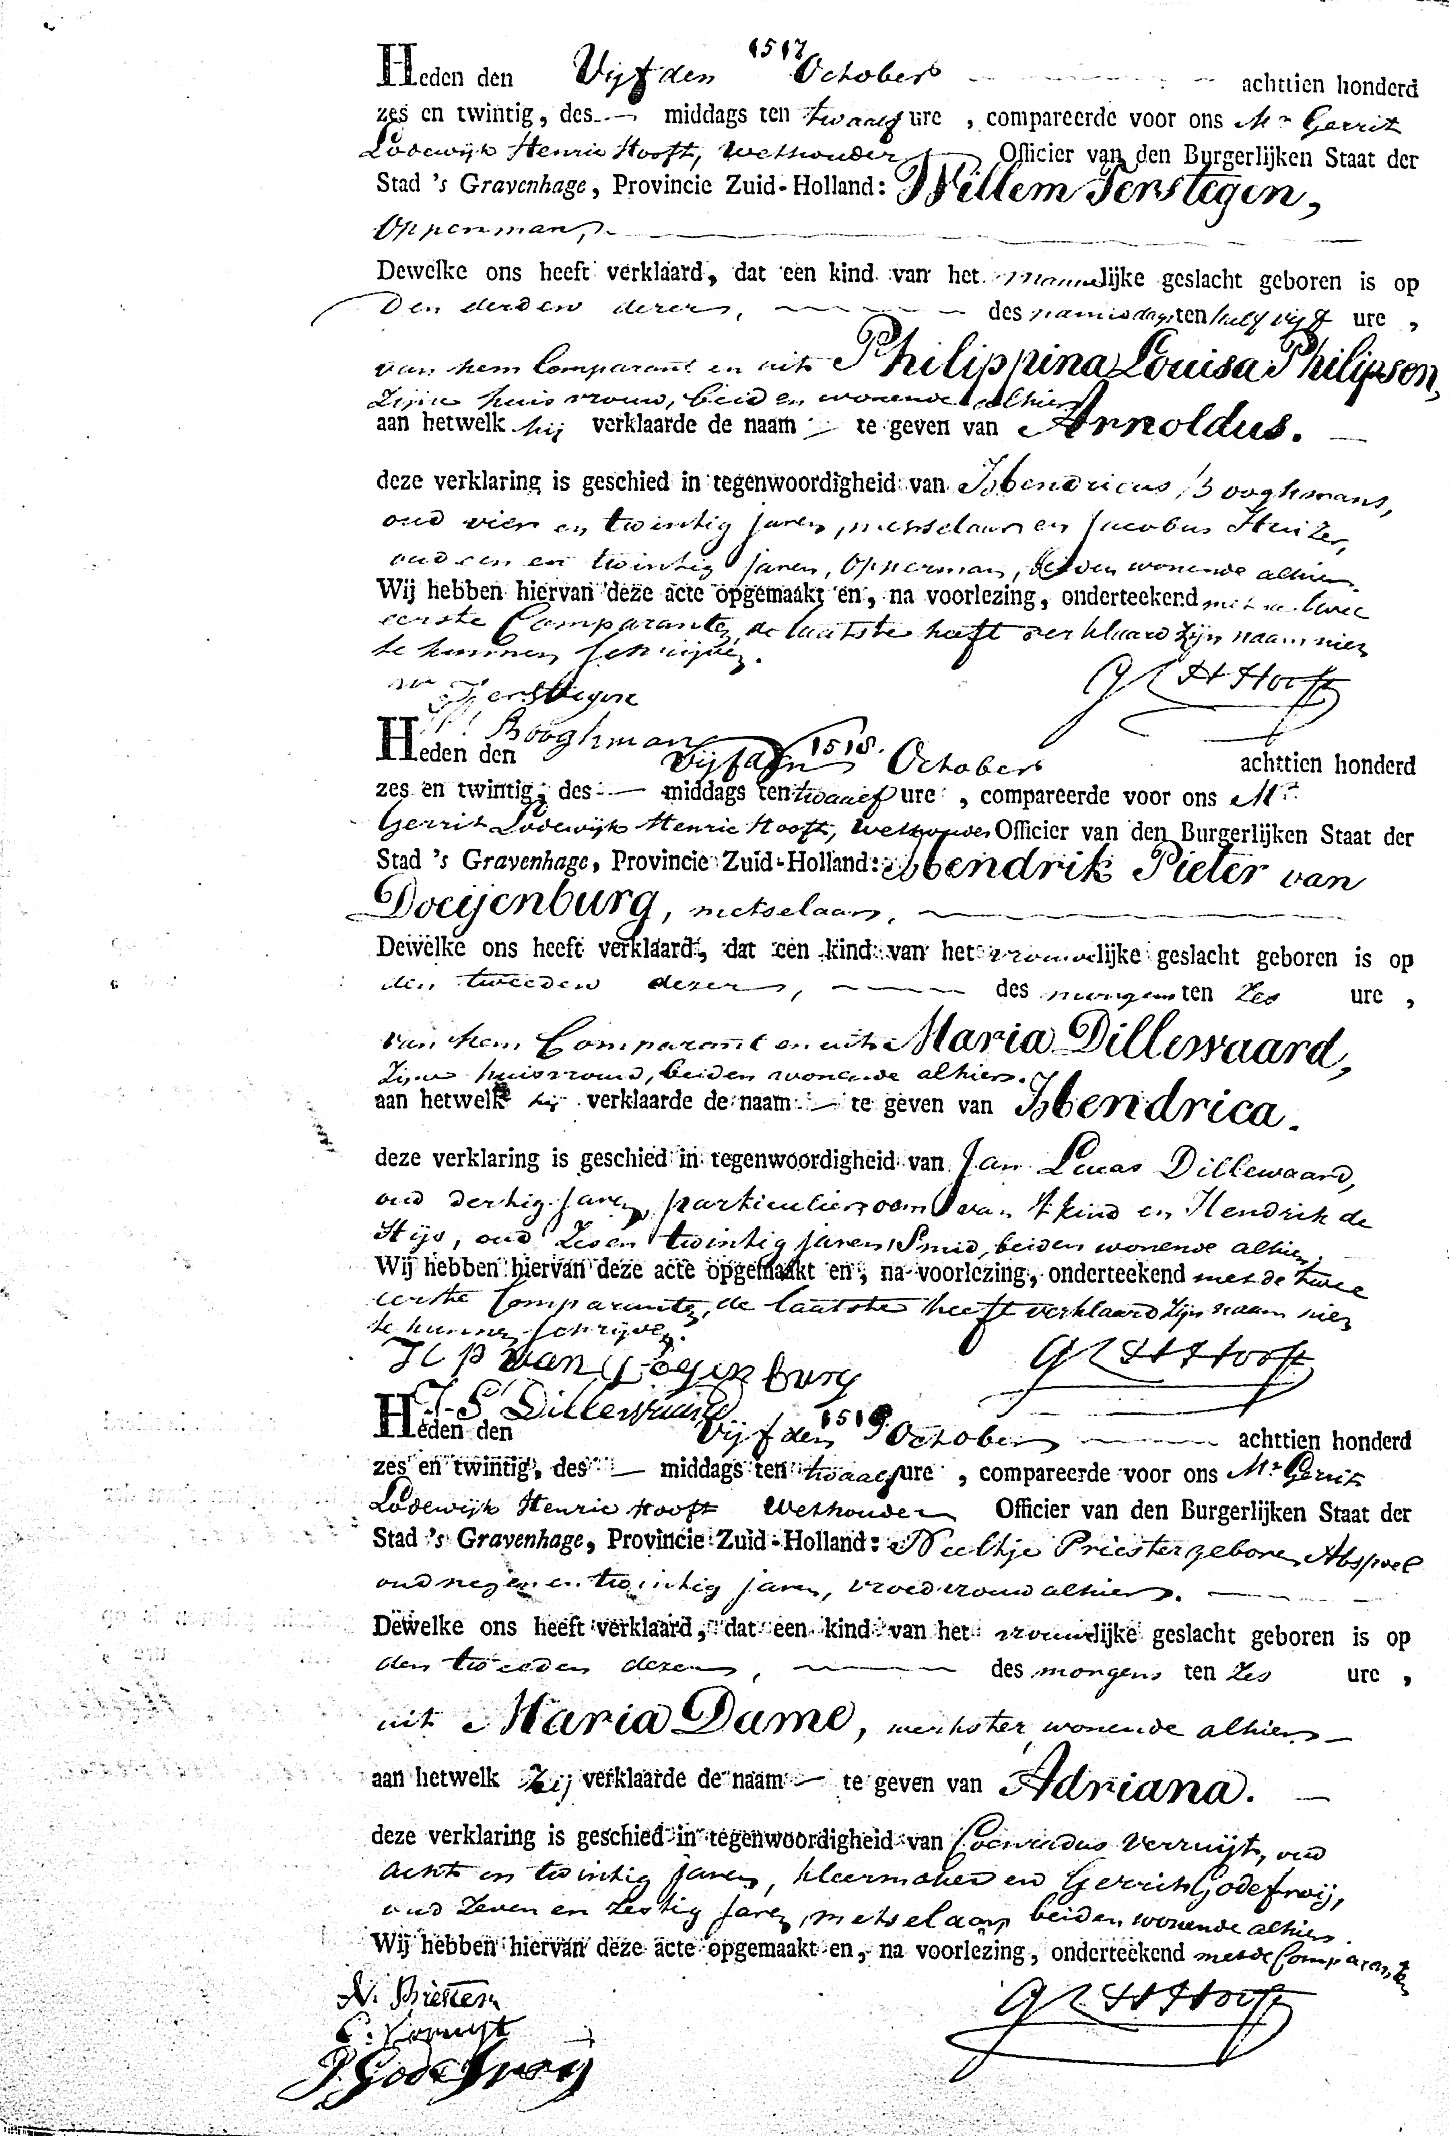 1517
Heden den Vijfden October achttien honderd
zes en twintig, des middags ten twaalf ure, compareerde voor ons Mr Gerrit
Lodewijk Henric Hooft, Wethouder, Officier van den Burgerlijken Staat der
Stad 's Gravenhage, Provincie Zuid-Holland: Willem Terstegen,
Opperman,
Dewelke ons heeft verklaard, dat een kind van het mannelijke geslacht geboren is op
den derden dezer, des namiddags ten half vijf ure,
van hem Comparant en uit Philippina Louisa Philipson,
Zijne huisvrouw, beiden wonende alhier
aan hetwelk hij verklaarde de naam te geven van Arnoldus.
deze verklaring is geschied in tegenwoordigheid van Hendricus Booghmans,
oud vier en twintig jaren, metselaar en Jacobus
oud een en twintig jaren, Opperman, beiden wonende alhier.
Wij hebben hiervan deze acte opgemaakt en, na voorlezing, onderteekend met de twee
eerste Comparanten, de laatste heeft verklaard zijn naam niet
te kunnen schrijven.
Wm Terstegen
GL H Hooft
H. Booghmans
1518.
Heden den Vijfden October achttien honderd
zes en twintig, des middags ten twaalf ure, compareerde voor ons Mr.
Gerrit Lodewijk Henric Hooft, Wethouder Officier van den Burgerlijken Staat der
Stad 's Gravenhage, Provincie Zuid-Holland: Hendrik Pieter van
Doeijenburg, metselaar,
Dewelke ons heeft verklaard, dat een kind van het vrouwelijke geslacht geboren is op
den tweeden dezer, des morgens ten Zes ure,
van hem Comparant en uit Maria Dillewaard,
Zijne huisvrouw, beiden wonende alhier.
aan hetwelk hij verklaarde de naam te geven van Hendrica.
deze verklaring is geschied in tegenwoordigheid van Jan Lucas Dillewaard,
oud dertig jaren, particulier, oom van 't kind en Hendrik de
Hijs, oud Zes en twintig jaren, Smid, beiden wonende alhier.
Wij hebben hiervan deze acte opgemaakt en, na voorlezing, onderteekend met de twee
eerste Comparanten, de laatste heeft verklaard zijn naam niet
te kunnen schrijven.
H P van Doeijenburg
GL H Hooft
J. L. Dillewaard
1519.
Heden den Vijfden October achttien honderd
zes en twintig, des middags ten twaalf ure, compareerde voor ons Mr Gerrit
Lodewijk Henric Hooft Wethouder Officier van den Burgerlijken Staat der
Stad 's Gravenhage, Provincie Zuid-Holland: Neeltje Priester geboren Abspoel
oud negen en twintig jaren, vroedvrouw alhier.
Dewelke ons heeft verklaard, dat een kind van het vrouwelijke geslacht geboren is op
den tweeden dezer, des morgens ten Zes ure,
uit Maria Dame, werkster, wonende alhier
aan hetwelk Zij verklaarde de naam te geven van Adriana.
deze verklaring is geschied in tegenwoordigheid van Coenradus Verruijt, oud
acht en twintig jaren, kleermaker en Gerrit Godefroij,
oud Zeven en zestig jaren, metselaar, beiden wonende alhier.
Wij hebben hiervan deze acte opgemaakt en, na voorlezing, onderteekend met de Comparanten
N. Priester
GL H Hooft
C. Verruijt
Godefroy